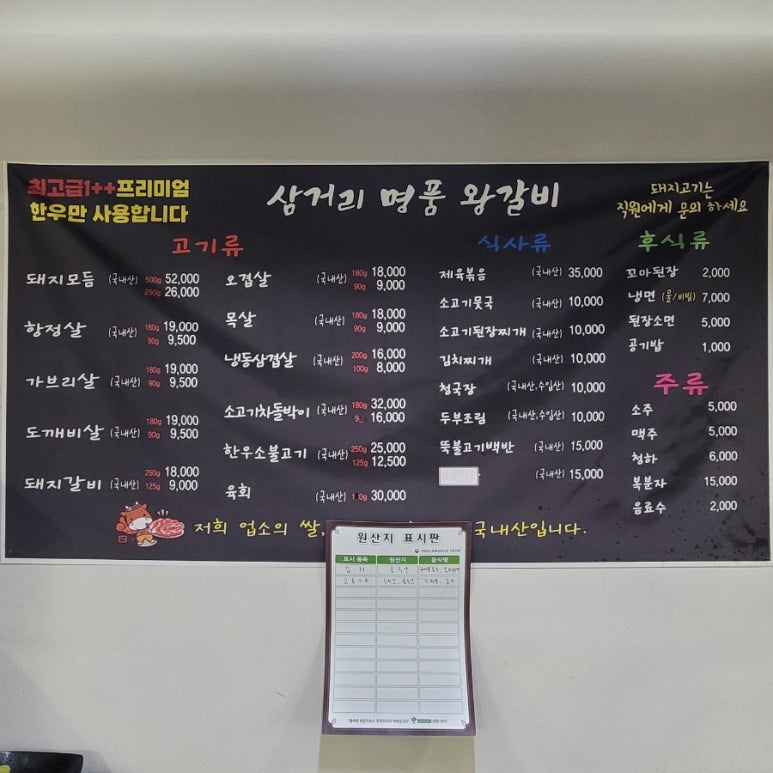 최고급1++프리미엄
한우만 사용합니다
삼거리 명품 왕갈비
돼지고기는
직원에게 문의 하세요
고기류
돼지모듬 (국내산) 500g 52,000
250g 26,000
항정살 (국내산) 180g 19,000
90g 9,500
가브리살 (국내산) 180g 19,000
90g 9,500
도깨비살 (국내산) 180g 19,000
90g 9,500
돼지갈비 (국내산) 250g 18,000
125g 9,000
오겹살 (국내산) 180g 18,000
90g 9,000
목살 (국내산) 180g 18,000
90g 9,000
냉동삼겹살 (국내산) 200g 16,000
100g 8,000
소고기차돌박이 (국내산) 180g 32,000
16,000
한우소불고기 (국내산) 250g 25,000
125g 12,500
육회 (국내산) 30,000
식사류
제육볶음 (국내산) 35,000
소고기뭇국 (국내산) 10,000
소고기된장찌개 (국내산) 10,000
김치찌개 (국내산) 10,000
청국장 (국내산,수입산) 10,000
두부조림 (국내산,수입산) 10,000
뚝불고기백반 (국내산) 15,000
(국내산) 15,000
후식류
꼬마된장 2,000
냉면 (물/비빔) 7,000
된장소면 5,000
공기밥 1,000
주류
소주 5,000
맥주 5,000
청하 6,000
복분자 15,000
음료수 2,000
저희 업소의 쌀, 국내산입니다.
원산지 표시판
표시 품목 원산지 음식명